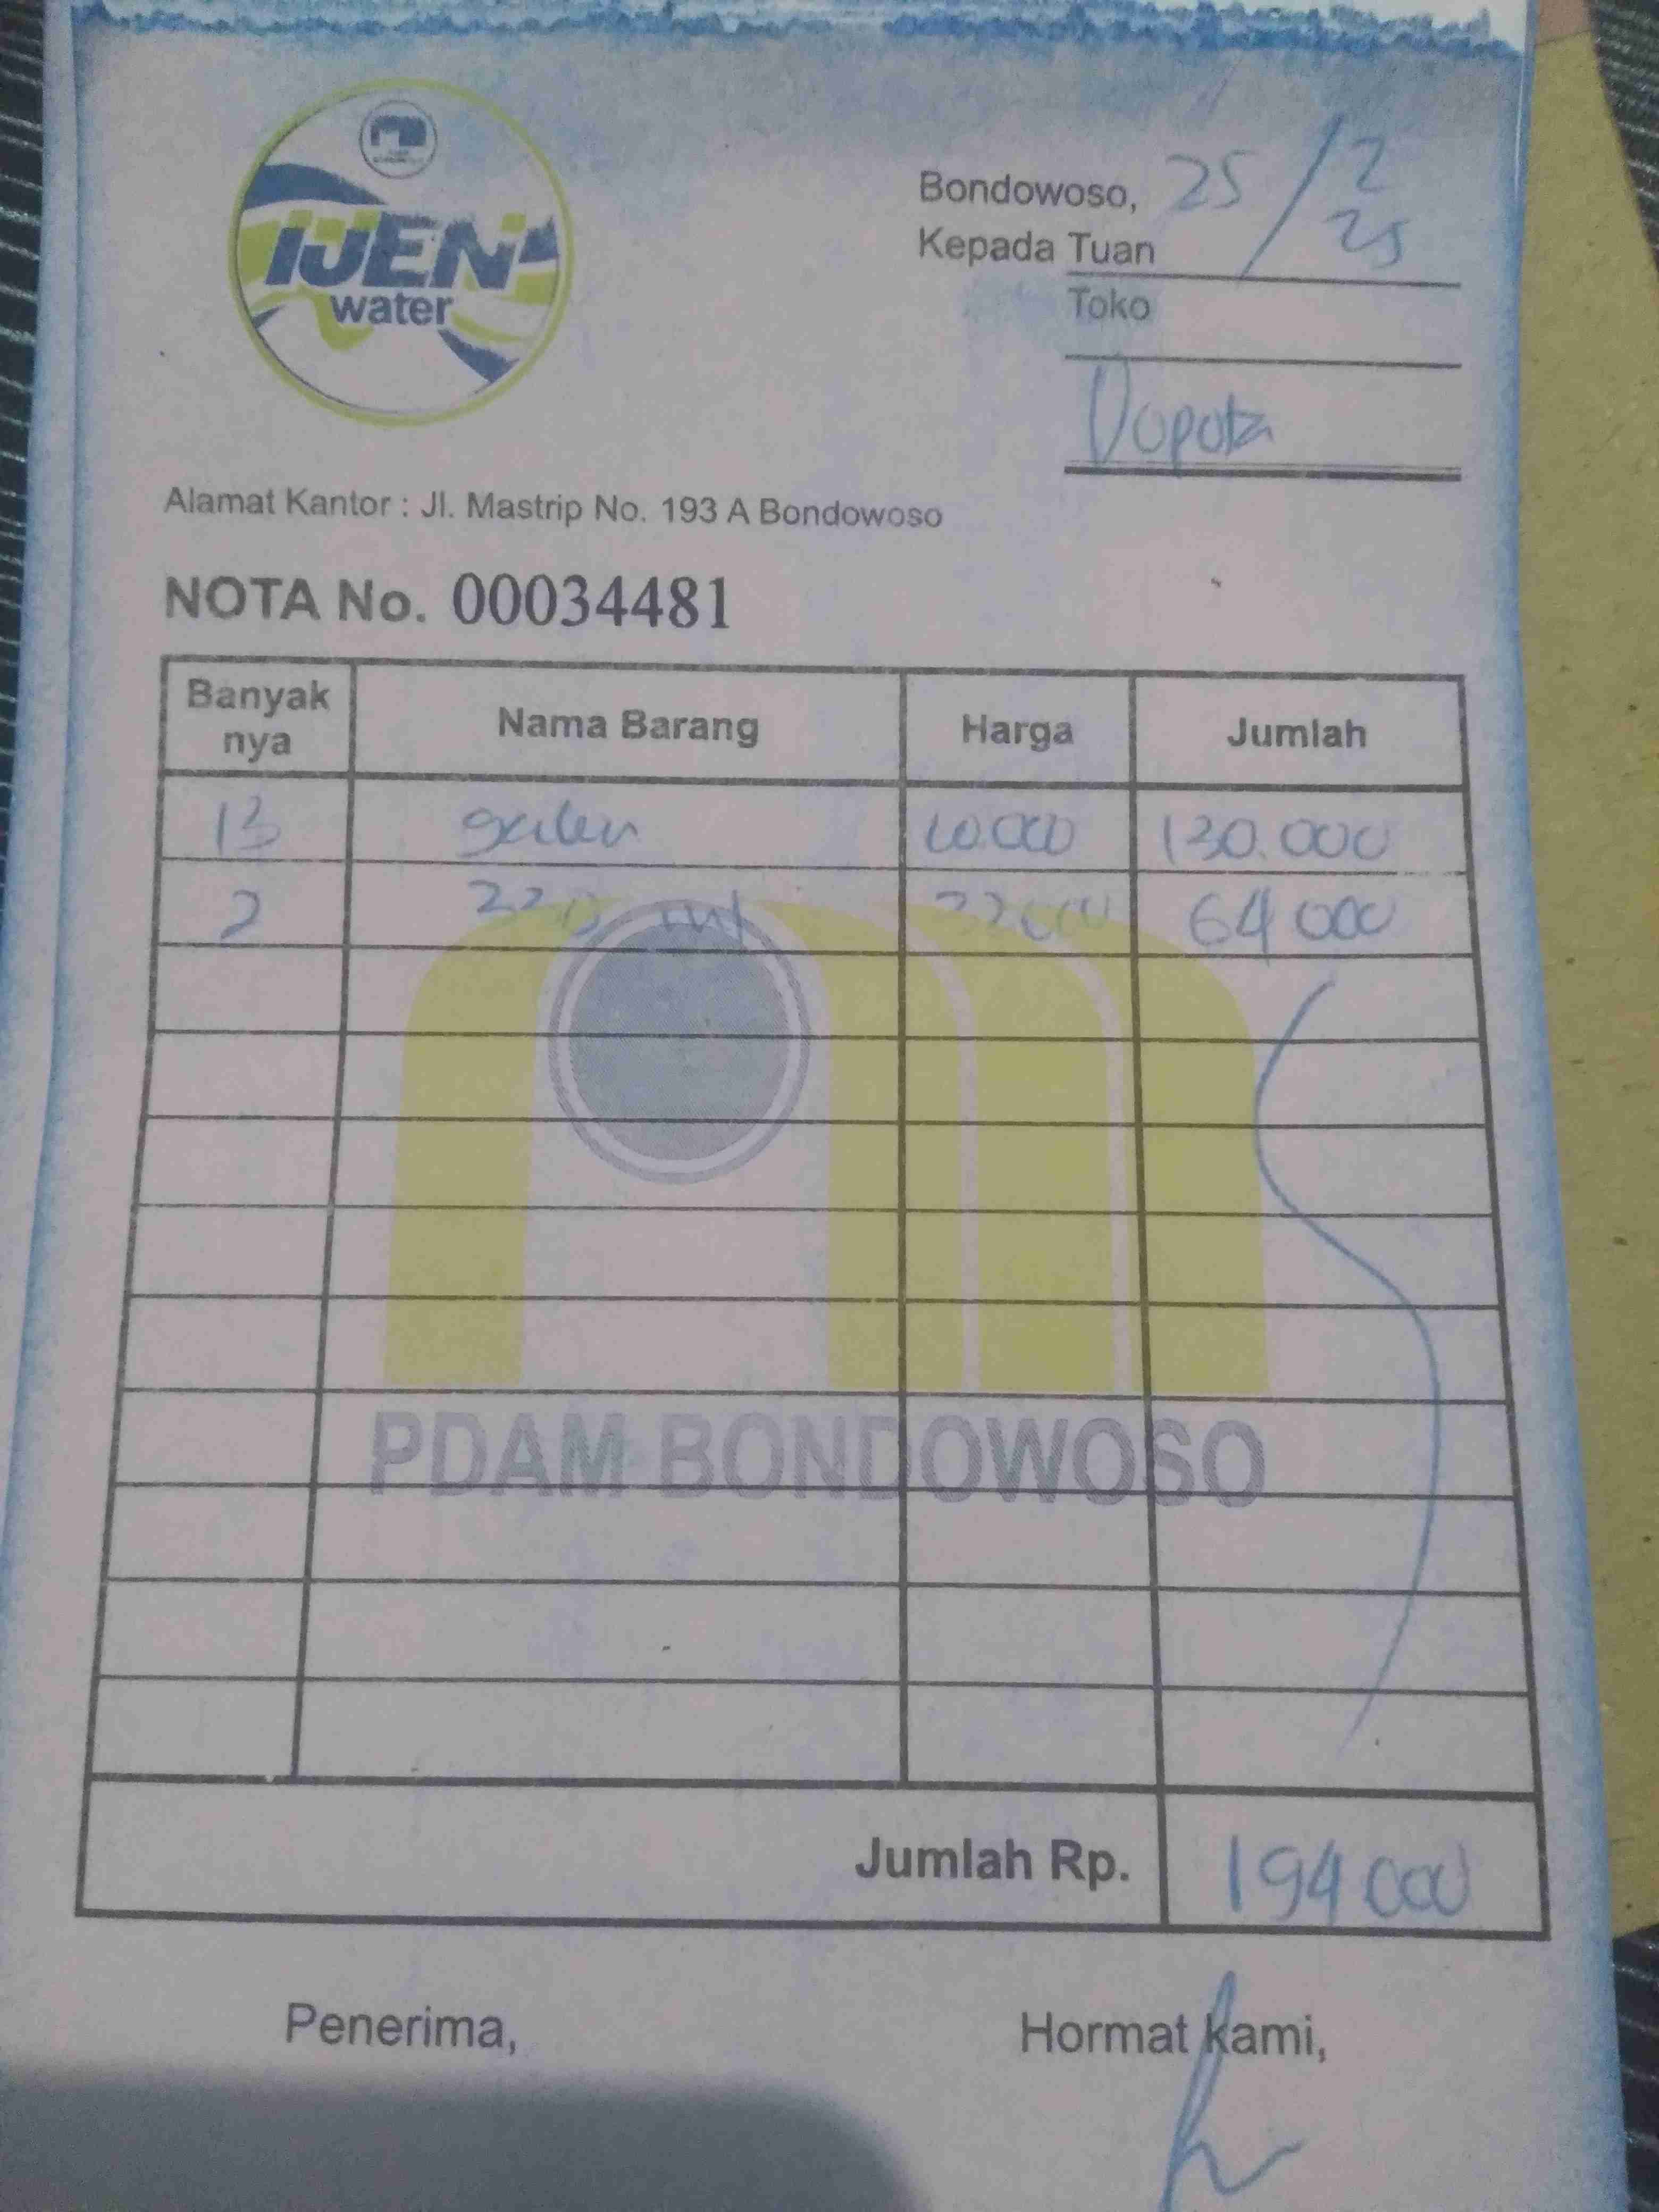 IJEN
water
Bondowoso, 25/2
25
Kepada Tuan
Toko
Alamat Kantor : Jl. Mastrip No. 193 A Bondowoso
NOTA No. 00034481
Banyak nya Nama Barang Harga Jumlah
13 galon 10.000 130.000
2 220 ml 32000 64 000
PDAM BONDOWOSO
Jumlah Rp. 194 000
Penerima, Hormat kami,